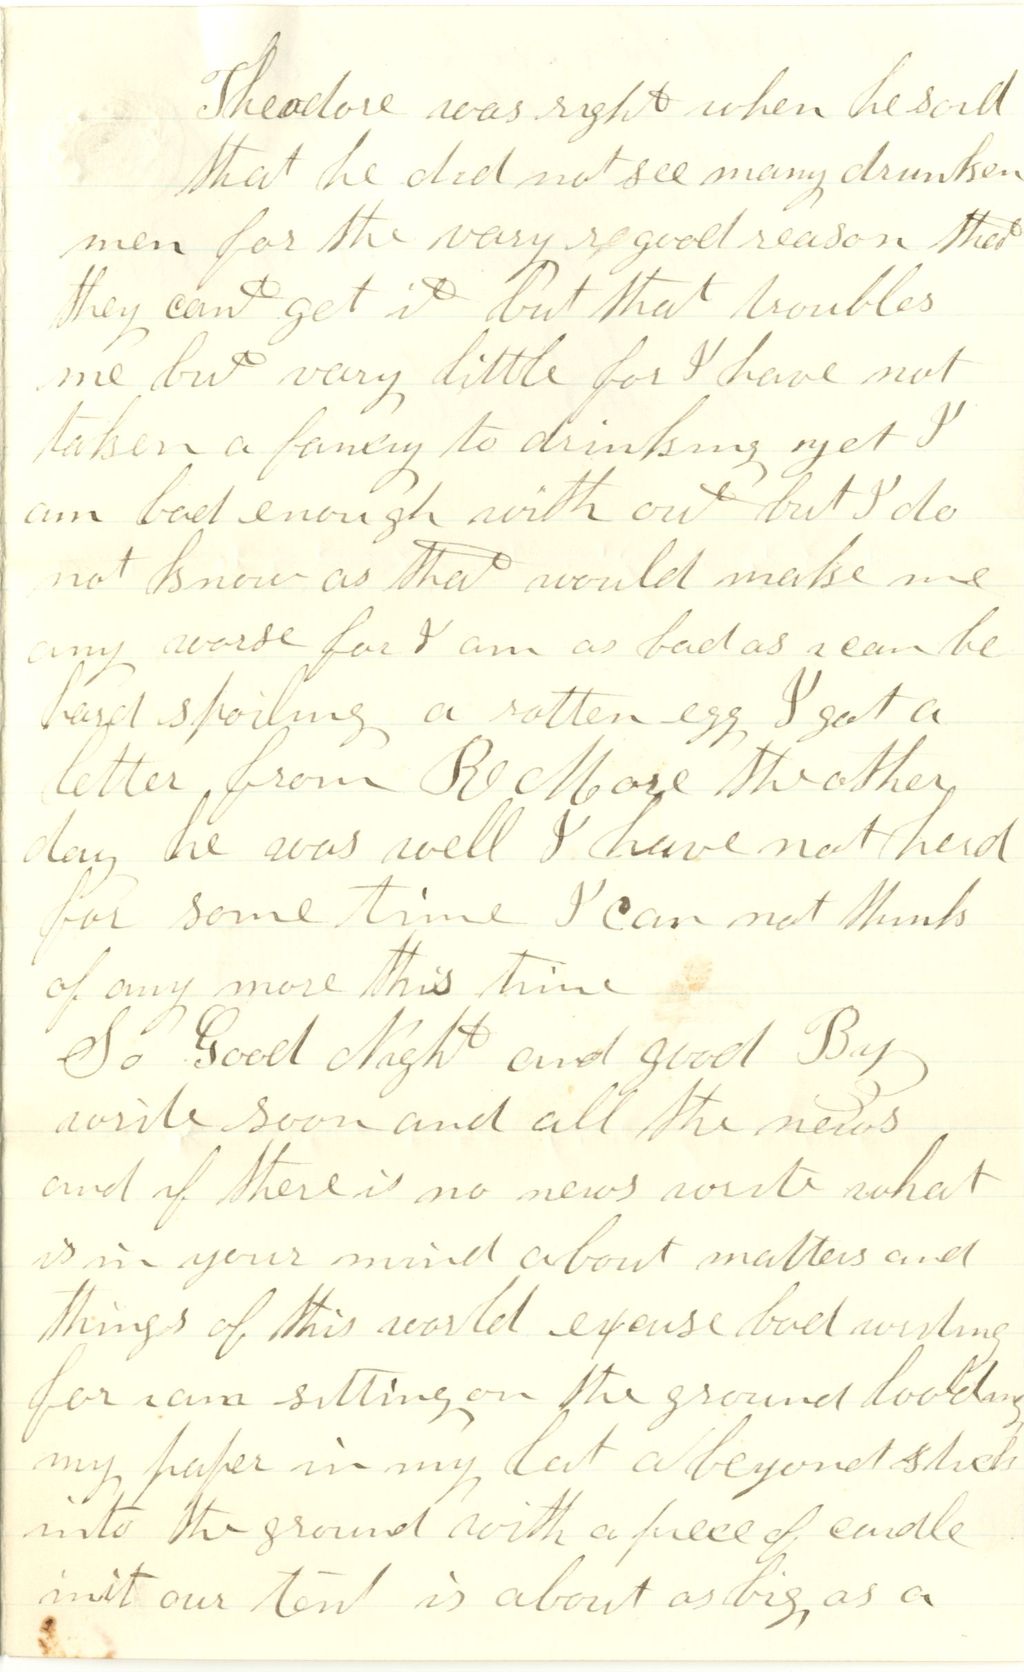 Theodore was right when he said
that he did not see many drunken
men for the vary good reason that
they cant get it but that troubles
me but vary little for I have not
taken a fancy to drinking yet I
am bad enough with out but I do
not know as that would make me
any worse for I am as bad as i can be
hard spoiling a rotten egg I got a
letter from R More the other
day he was well I have not herd
for some time I can not think
of any more this time
So Good Night and good By
write soon and all the news
and if there is no news write what
is in your mind about matters and
things of this world excuse bad writing
for i am sitting on the ground holding
my paper in my a beyond stuck
into the ground with a piece of candle
in it our tent is about as big as a